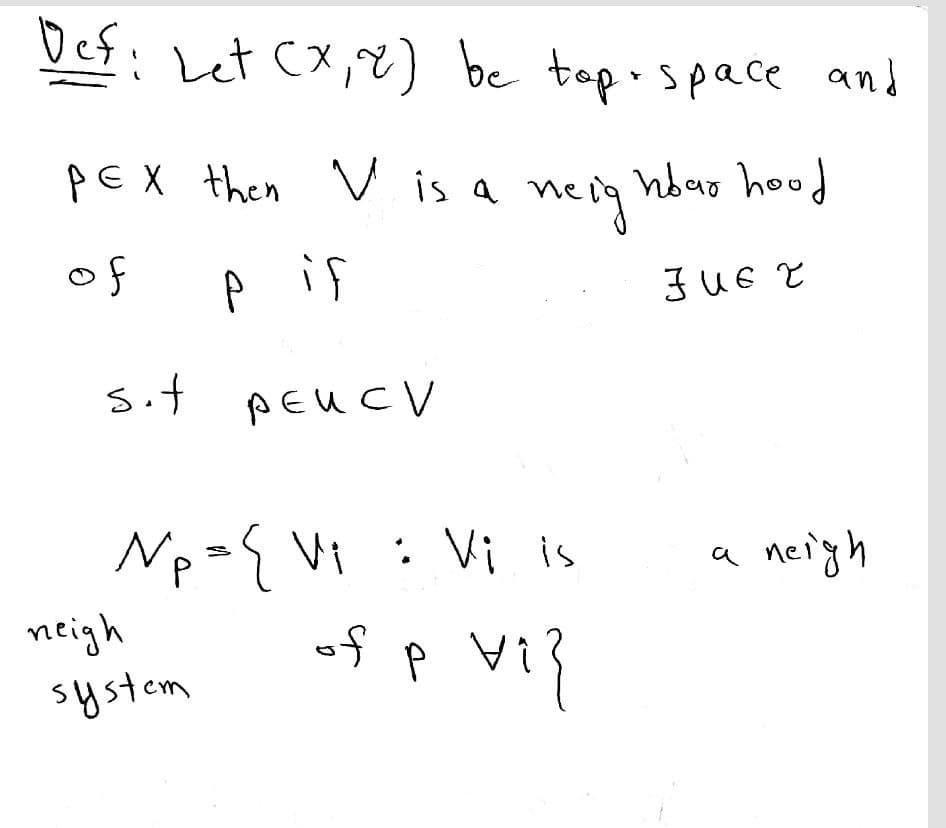 Def: Let (X,τ) be top. space and
p∈X then V is a neighbarhood
of p if ∃U∈τ
s.t p∈U⊂V
Np={Vi : Vi is a neigh
neigh of p ∀i}
system